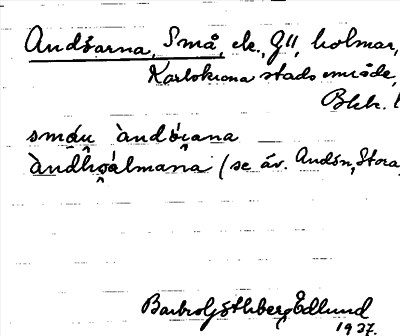 Andöarna, Små, ek., Gll, holmar,
Karlskrona stads område,
Blek.
små̀u àndö́ana
àndhoálmana (se äv. Andön, Stora
Barbro Göthberg Edlund
1937.